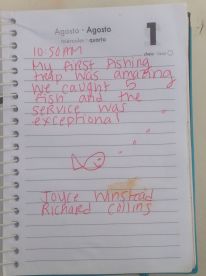 Agosto · Agosto
miércoles · quarta
1
10:50AM
My first fishing
trip was amazing
we caught 5
fish and the
service was
exceptional
Joyce Winstead
Richard Collins